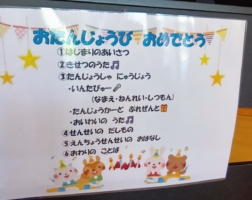 おたんじょうび おめでとう
①はじまりのあいさつ
②きせつのうた🎵
③たんじょうしゃ にゅうじょう
・いんたびゅー🎤
(なまえ・ねんれい・しつもん)
・たんじょうかーど ぷれぜんと🎁
・おいわいの うた🎵
④せんせいの だしもの
⑤えんちょうせんせいの おはなし
⑥おわりの ことば